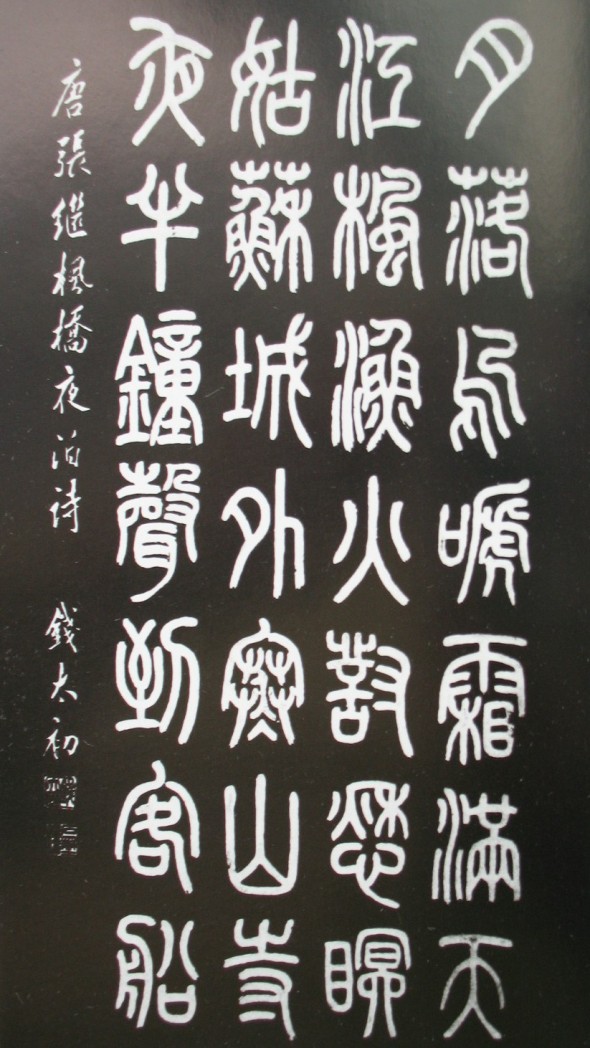 月落烏嗁霜滿天
江楓漁火對愁瞑
姑蘇城外寒山寺
夜半鐘聲到客船
唐張繼楓橋夜泊詩 錢太初